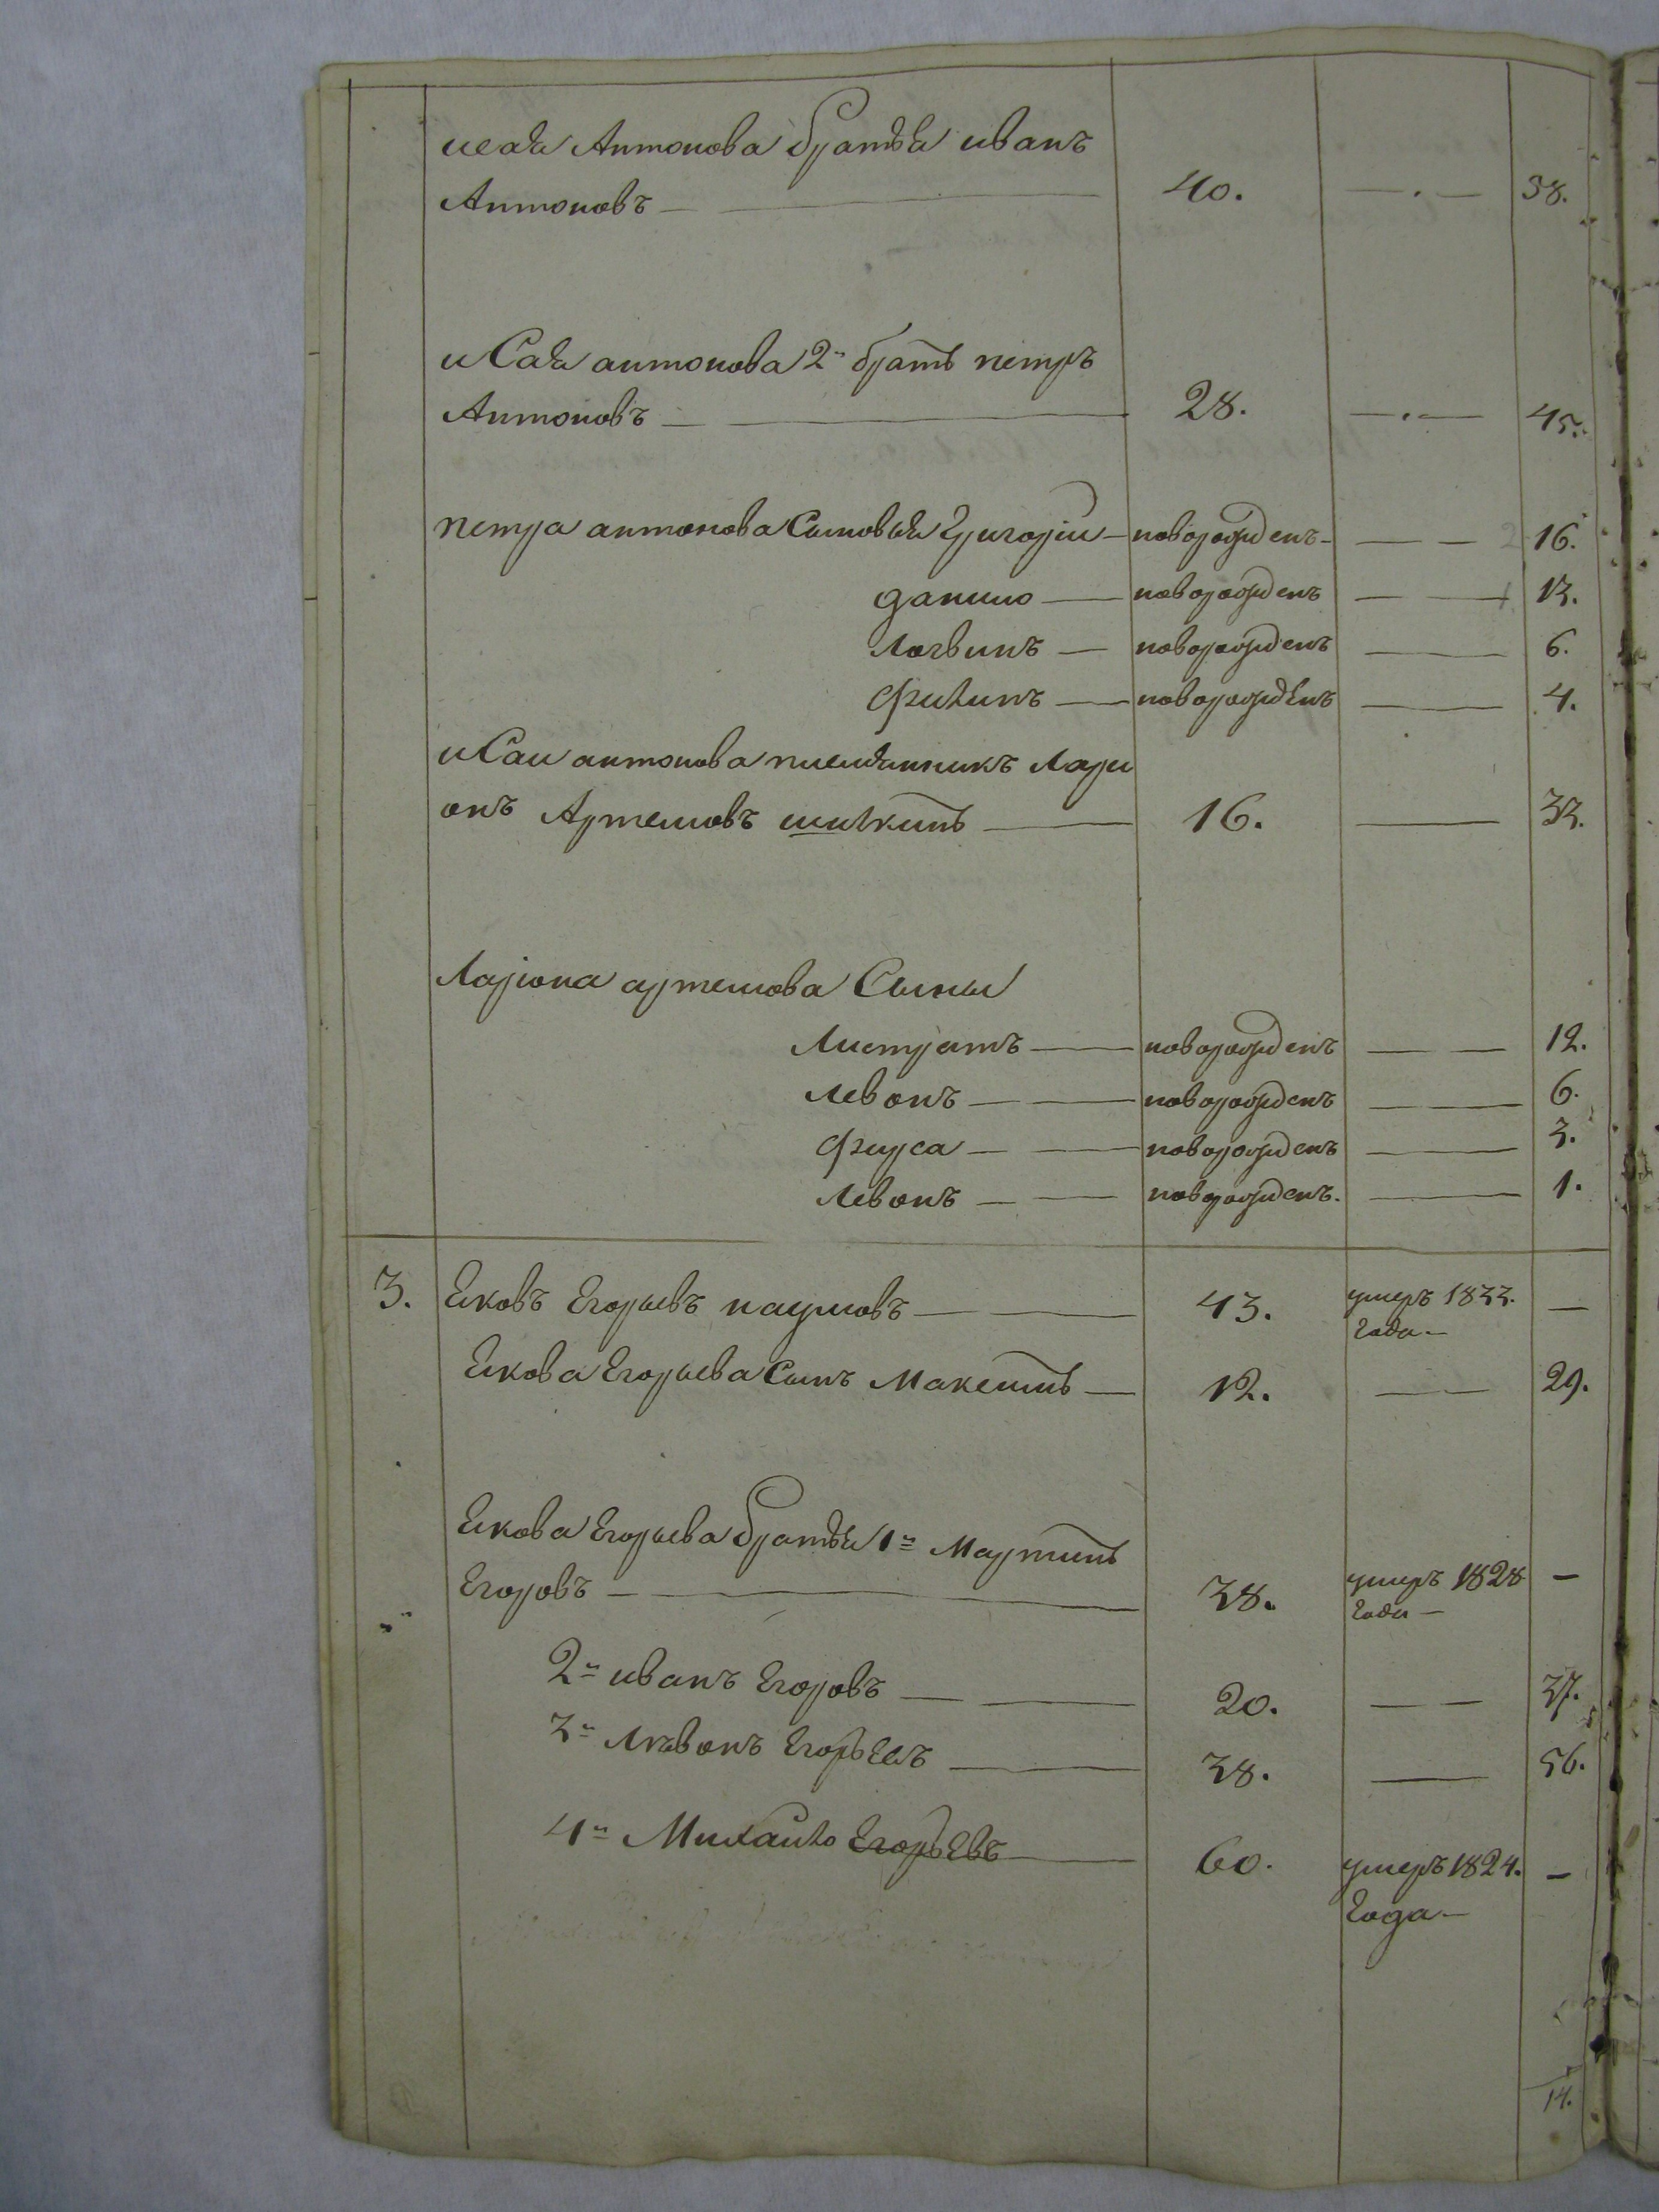 исая Антонова братья иванъ
Антоновъ — 40. — 58.
исая антонова 2й братъ петръ
Антоновъ — 28. — 45.
петра антонова Сыновья Григорiи — новорожденъ — 16.
данило — новорожденъ — 13.
Логвинъ — новорожденъ — 6.
Филипъ — новорожденъ — 4.
исаи антонова племянникъ Лари
онъ Артемовъ шилкинъ — 16. — 33.
Ларiона артемова Сыны
Листратъ — новорожденъ — 12.
Левонъ — новорожденъ — 6.
Фирса — новорожденъ — 3.
Левонъ — новорожденъ. — 1.
3. Ековъ Егорьевъ наумовъ — 43. умеръ 1833. —
года —
Екова Егорьева Сынъ Максимъ — 12. — 29.
Екова Егорьева братья 1й Мартинъ
Егоровъ — 38. умеръ 1828 —
года —
2й иванъ Егоровъ — 20. — 37.
3й Левонъ Егорьевъ — 38. — 56.
4й Михаило Егорьевъ — 60. умеръ 1824. —
года —
14.